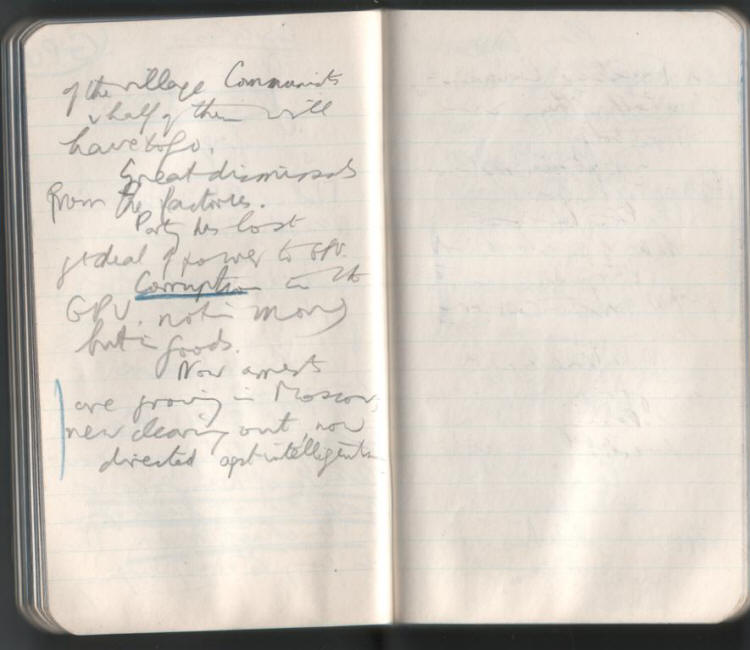 of the village Communists
& half of them will
have to go.
Great dismissals
from the factories.
Party has lost
gt deal of power to GPU.
Corruption in the
GPU. not in money
but in goods.
Now arrests
are growing in Moscow,
new clearing out now
directed agst intelligentsia